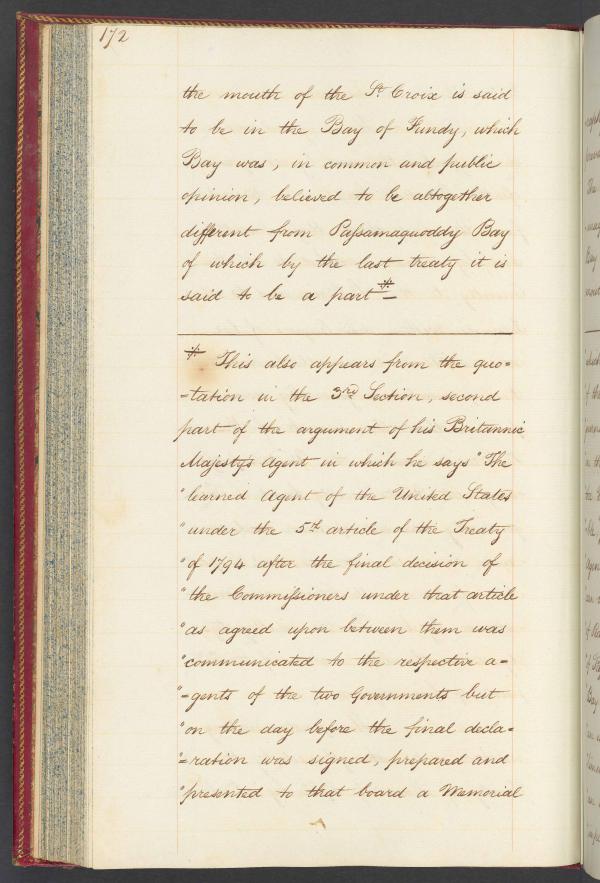 172
the mouth of the St Croix is said
to be in the Bay of Fundy, which
Bay was, in common and public
opinion, believed to be altogether
different from Paſsamaquoddy Bay
of which by the last treaty it is
said to be a part *
* This also appears from the quo=
=tation in the 3rd Section, second
part of the argument of his Britannic
Majesty's Agent in which he says "The
"learned Agent of the United States
"under the 5th article of the Treaty
"of 1794 after the final decision of
"the Commiſsioners under that article
"as agreed upon between them was
"communicated to the respective a=
"=gents of the two Governments but
"on the day before the final decla=
"=ration was signed, prepared and
"presented to that board a Memorial